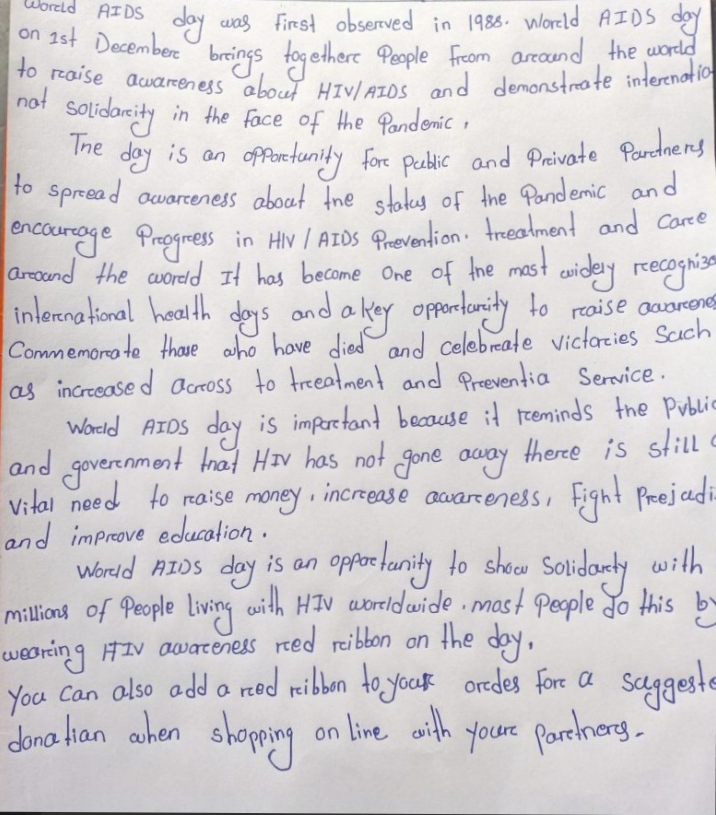 World AIDS day was first observed in 1988. World AIDS day
on 1st December brings together People from around the world
to raise awareness about HIV/AIDS and demonstrate internatio
nal solidarity in the face of the Pandemic,
The day is an opportunity for public and Private Partners
to spread awareness about the status of the Pandemic and
encourage Progress in HIV / AIDS Prevention. treatment and Care
around the world It has become One of the most widely recognize
international health days and a key opportunity to raise awarenes
Commemorate those who have died and celebrate victories Such
as increased across to treatment and Preventia Service.
World AIDS day is important because it reminds the Public
and government that HIV has not gone away there is still a
Vital need to raise money, increase awareness, Fight Prejudi
and improve education.
World AIDS day is an opportunity to show Solidarty with
millions of People living with HIV worldwide. most People do this by
wearing HIV awareness red ribbon on the day.
You Can also add a red ribbon to your ordes For a suggeste
donation when shopping on line with your Partners.